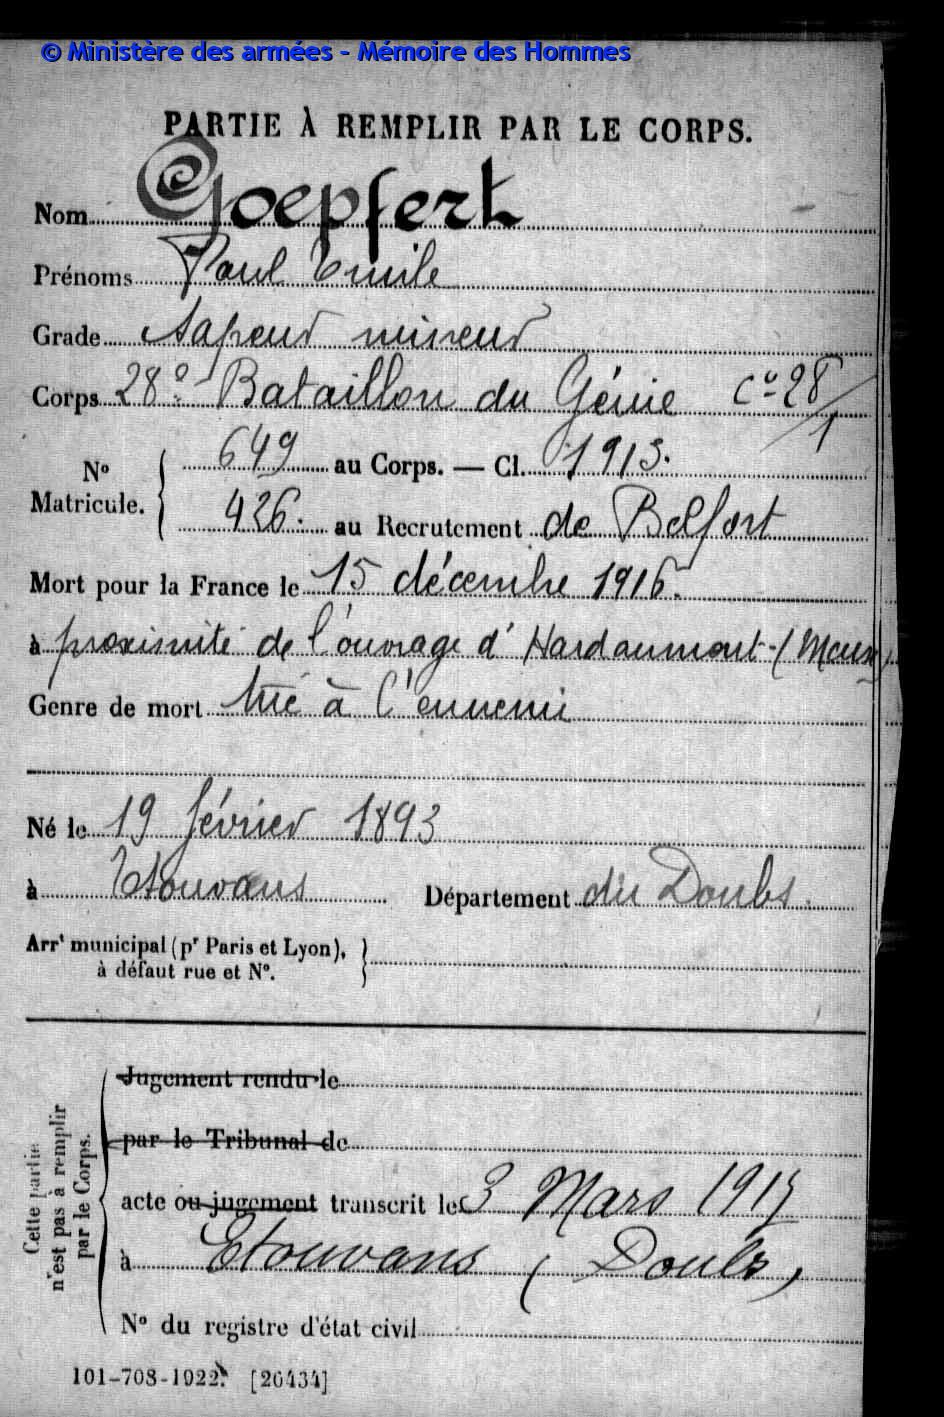 © Ministère des armées - Mémoire des Hommes
PARTIE À REMPLIR PAR LE CORPS.
Nom Goepfert
Prénoms Paul Emile
Grade Sapeur mineur
Corps 28e Bataillon du Génie Cie 28/1
No Matricule. { 649 au Corps. — Cl. 1913.
426. au Recrutement de Belfort
Mort pour la France le 15 décembre 1916.
à proximité de l'ouvrage d'Hardaumont - (Meuse)
Genre de mort tué à l'ennemi
Né le 19 février 1893
à Etouvans Département du Doubs.
Arrt municipal (pr Paris et Lyon), }
à défaut rue et No.
Cette partie n'est pas à remplir par le Corps.
Jugement rendu le
par le Tribunal de
acte ou jugement transcrit le 3 Mars 1917
à Etouvans (Doubs)
No du registre d'état civil
101-708-1922. [26434]